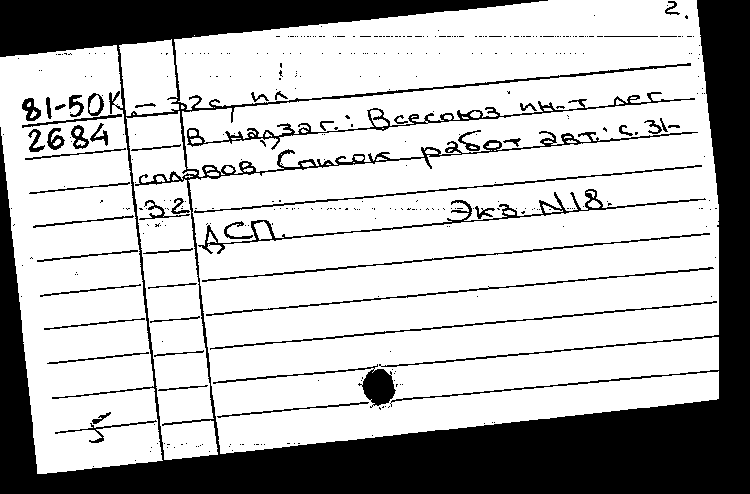 2.
81-50К – 32с, ил.
2684 В надзаг.: Всесоюз ин-т лег.
сплавов. Список работ авт.: с. 31-
32
ДСП. Экз. N18.
5